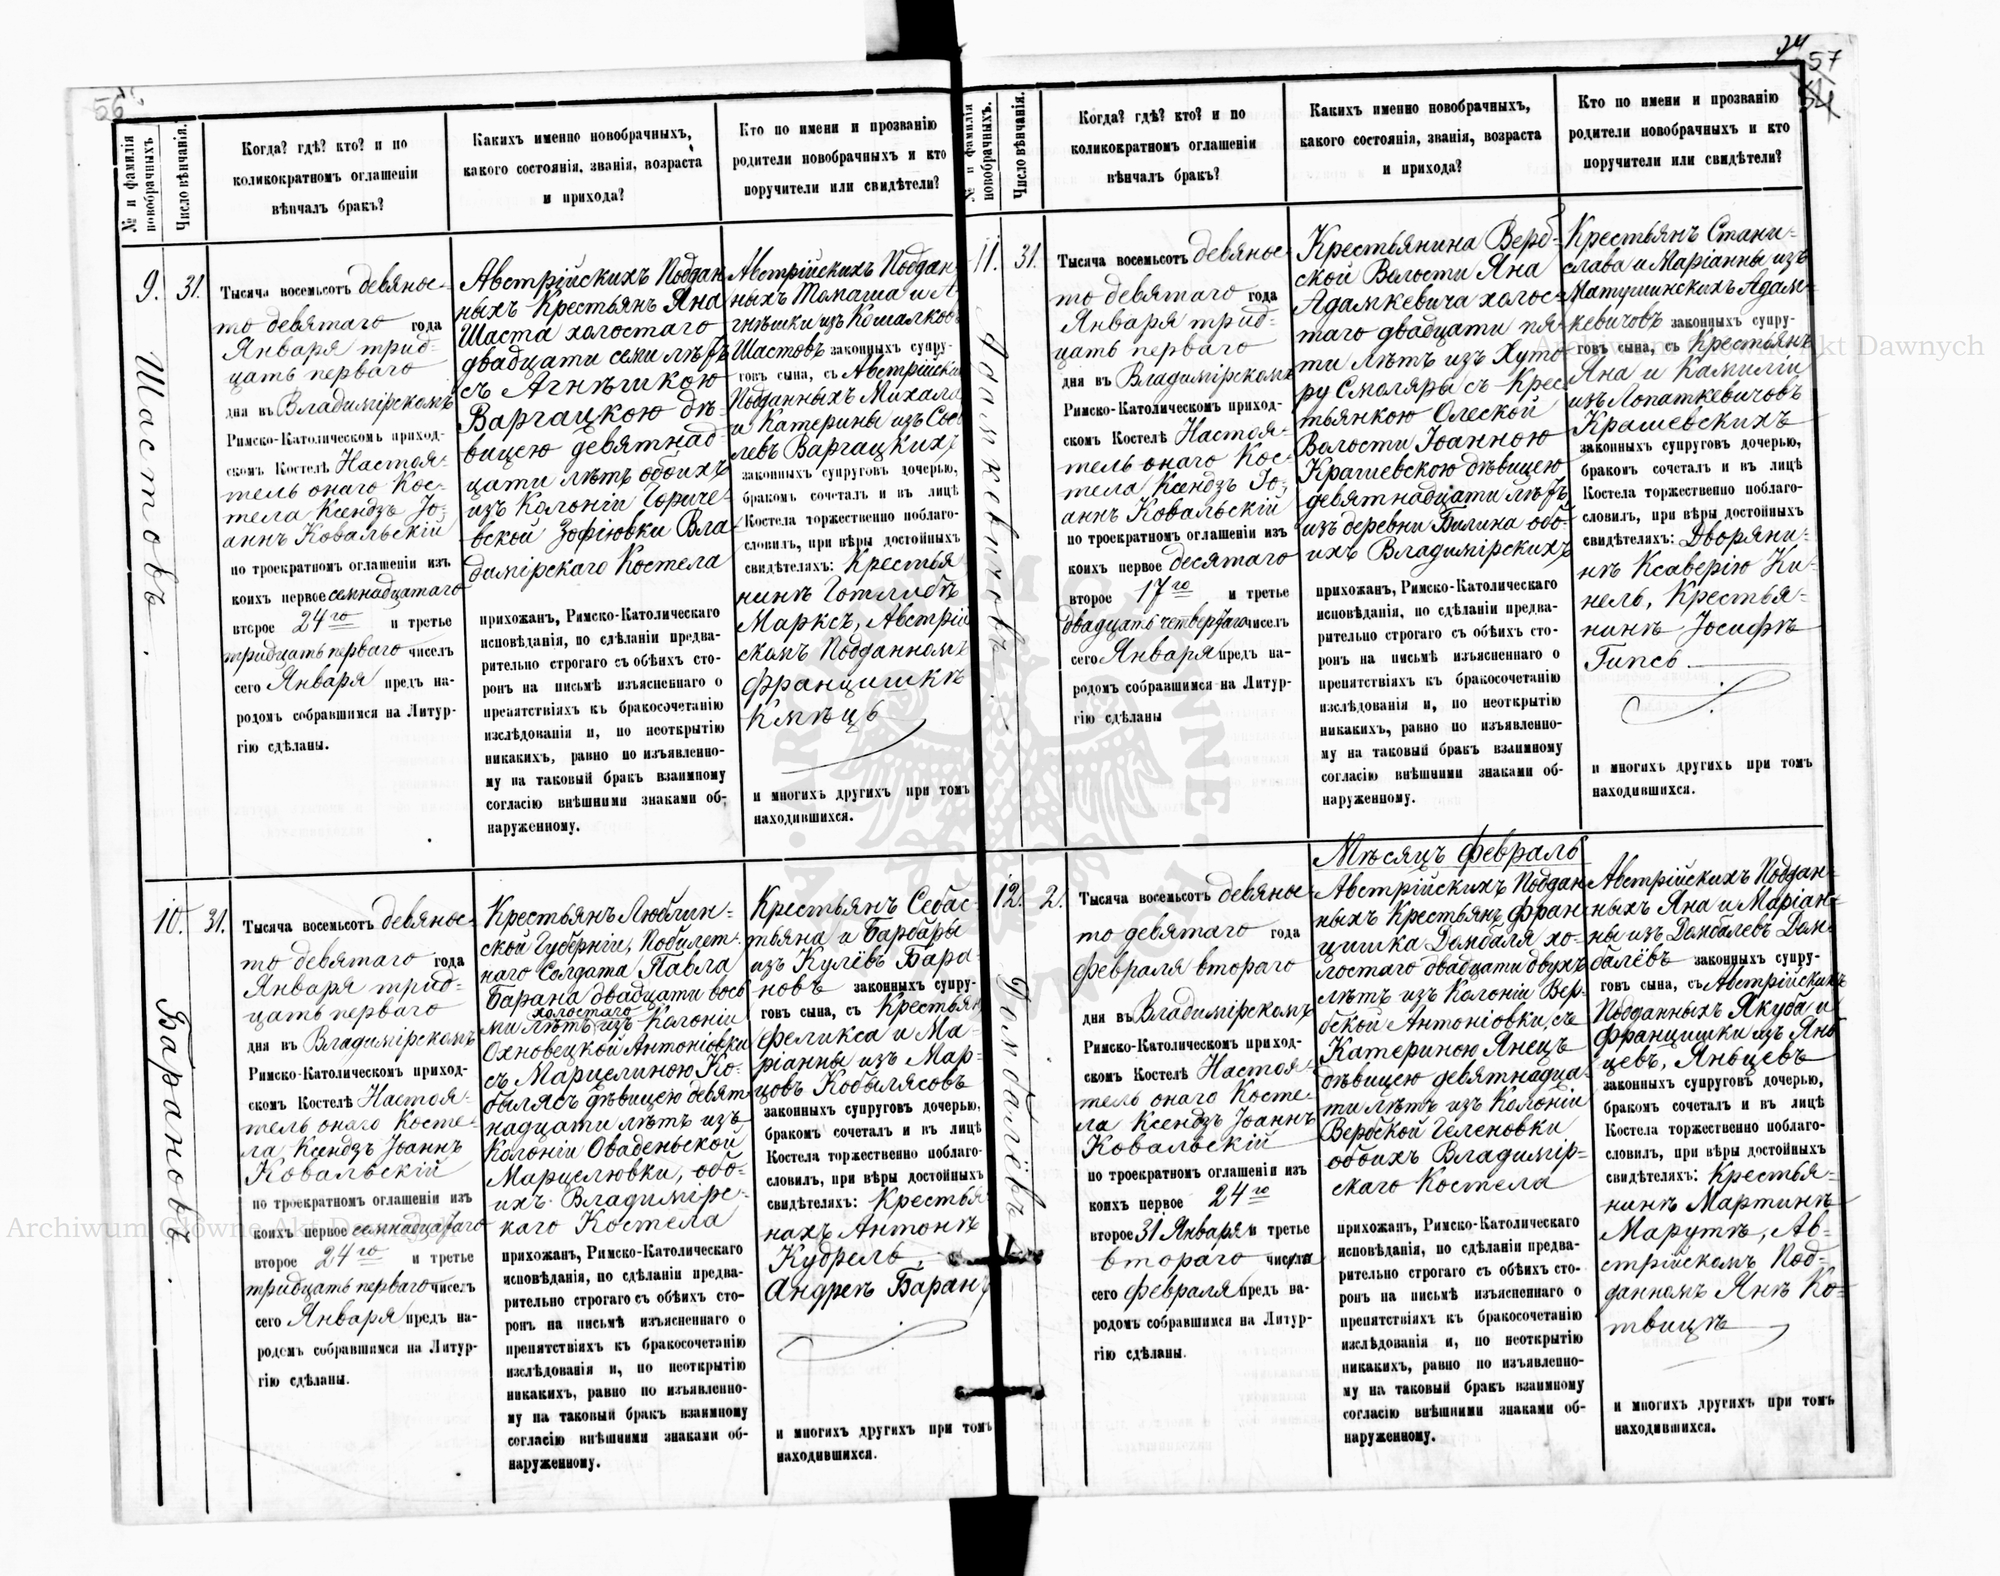 56
№ и фамилія новобрачныхъ.
Число вѣнчанія.
Когда? гдѣ? кто? и по
коликократномъ оглашеніи
вѣнчалъ бракъ?
Какихъ именно новобрачныхъ,
какого состоянія, званія, возраста
и прихода?
Кто по имени и прозванію
родители новобрачныхъ и кто
поручители или свидѣтели?
9.
31.
Шастовъ.
Тысяча восемьсотъ девяно-
то девятаго года
Января трид-
цать перваго
дня въ Владимірскомъ
Римско-Католическомъ приход-
скомъ Костелѣ Настоя-
тель онаго Кос-
тела Ксендзъ Іо-
аннъ Ковальскій
по троекратномъ оглашеніи изъ
коихъ первое семнадцатаго
второе 24го и третье
тридцать перваго чиселъ
сего Января предъ на-
родомъ собравшимся на Литур-
гію сдѣланы.
Австрійскихъ Поддан
ныхъ Крестьянъ Яна
Шаста холостаго
двадцати семи лѣтъ
съ Агнѣшкою
Варгацкою дѣ-
вицею девятнад-
цати лѣтъ обоихъ
изъ Колоніи Гориче-
вской Зофіювки Вла-
димірскаго Костела
прихожан, Римско-Католическаго
исповѣданія, по сдѣланіи предва-
рительно строгаго съ обѣихъ сто-
ронъ на письмѣ изъясненнаго о
препятствіяхъ къ бракосочетанію
изслѣдованія и, по неоткрытію
никакихъ, равно по изъявленно-
му на таковый бракъ взаимному
согласію внѣшними знаками об-
наруженному.
Австрійскихъ Поддан-
ныхъ Томаша и А-
гнѣшки изъ Кошалковъ
Шастовъ законныхъ супру-
говъ сына, съ Австрійски
Подданныхъ Михала
и Катерины изъ
Варгацкихъ
законныхъ супруговъ дочерью,
бракомъ сочеталъ и въ лицѣ
Костела торжественно поблаго-
словилъ, при вѣры достойныхъ
свидѣтеляхъ: Крестья
нинѣ Готлибѣ
Марксъ, Австрій
скомъ Подданномъ
Францишкѣ
Кмѣць
и многихъ другихъ при томъ
находившихся.
10.
31.
Барановъ.
Тысяча восемьсотъ девяно-
то девятаго года
Января трид-
цать перваго
дня въ Владимірскомъ
Римско-Католическомъ приход-
скомъ Костелѣ Настоя-
тель онаго Косте-
ла Ксендзъ Іоаннъ
Ковальскій
по троекратномъ оглашеніи изъ
коихъ первое семнадцатаго
второе 24го и третье
тридцать перваго чиселъ
сего Января предъ на-
родомъ собравшимся на Литур-
гію сдѣланы.
Крестьянъ Люблин-
ской Губерніи, Побилет-
наго Солдата Павла
Барана двадцати вось
ми лѣтъ холостаго изъ Колоніи
Охновецкой Антоніовки
съ Марцелиною Ко-
былясъ дѣвицею девят-
надцати лѣтъ изъ
Колоніи Оваденьской
Марцелювки, обо-
ихъ Владимірс-
каго Костела
прихожан, Римско-Католическаго
исповѣданія, по сдѣланіи предва-
рительно строгаго съ обѣихъ сто-
ронъ на письмѣ изъясненнаго о
препятствіяхъ къ бракосочетанію
изслѣдованія и, по неоткрытію
никакихъ, равно по изъявленно-
му на таковый бракъ взаимному
согласію внѣшними знаками об-
наруженному.
Крестьянъ Себас-
тьяна и Барбары
изъ Кулёвъ Бара-
новъ законныхъ супру-
говъ сына, съ Крестьян
Феликса и Ма-
ріанны изъ Мар-
цовъ Кобылясовъ
законныхъ супруговъ дочерью,
бракомъ сочеталъ и въ лицѣ
Костела торжественно поблаго-
словилъ, при вѣры достойныхъ
свидѣтеляхъ: Крестья
нахъ Антонѣ
Кудрель,
Андрею Баранъ
и многихъ другихъ при томъ
находившихся.
57
№ и фамилія новобрачныхъ.
Число вѣнчанія.
Когда? гдѣ? кто? и по
коликократномъ оглашеніи
вѣнчалъ бракъ?
Какихъ именно новобрачныхъ,
какого состоянія, званія, возраста
и прихода?
Кто по имени и прозванію
родители новобрачныхъ и кто
поручители или свидѣтели?
11.
31.
Адамкевичовъ.
Тысяча восемьсотъ девяно-
то девятаго года
Января трид-
цать перваго
дня въ Владимірскомъ
Римско-Католическомъ приход-
скомъ Костелѣ Настоя-
тель онаго Кос-
тела Ксендзъ Іо-
аннъ Ковальскій
по троекратномъ оглашеніи изъ
коихъ первое десятаго
второе 17го и третье
двадцать четвертаго чиселъ
сего Января предъ на-
родомъ собравшимся на Литур-
гію сдѣланы
Крестьянина Верб-
ской Волости Яна
Адамкевича холос-
таго двадцати пя-
ти лѣтъ изъ Хуто-
ру Смоляры съ Крес-
тьянкою Олеской
Волости Іоанною
Крашевскою дѣвицею
девятнадцати лѣтъ
изъ деревни Билина обо-
ихъ Владимірскихъ
прихожан, Римско-Католическаго
исповѣданія, по сдѣланіи предва-
рительно строгаго съ обѣихъ сто-
ронъ на письмѣ изъясненнаго о
препятствіяхъ къ бракосочетанію
изслѣдованія и, по неоткрытію
никакихъ, равно по изъявленно-
му на таковый бракъ взаимному
согласію внѣшними знаками об-
наруженному.
Крестьянъ Стани-
слава и Маріанны изъ
Матушинскихъ Адам-
кевичовъ законныхъ супру-
говъ сына, съ Крестьянъ
Яна и Камиліи
изъ Лопаткевичовъ
Крашевскихъ
законныхъ супруговъ дочерью,
бракомъ сочеталъ и въ лицѣ
Костела торжественно поблаго-
словилъ, при вѣры достойныхъ
свидѣтеляхъ: Дворяни-
нѣ Ксаверію Ки-
нель, Крестья-
нинѣ Іосифѣ
Гипсъ
и многихъ другихъ при томъ
находившихся.
12.
2.
Домбалёвъ
Мѣсяцъ Февраль
Тысяча восемьсотъ девяно-
то девятаго года
Февраля втораго
дня въ Владимірскомъ
Римско-Католическомъ приход-
скомъ Костелѣ Настоя-
тель онаго Косте-
ла Ксендзъ Іоаннъ
Ковальскій
по троекратномъ оглашеніи изъ
коихъ первое 24го
второе 31 Января и третье
втораго числа
сего Февраля предъ на-
родомъ собравшимся на Литур-
гію сдѣланы.
Австрійскихъ Поддан
ныхъ Крестьянъ Фран-
цишка Домбаля хо-
лостаго двадцати двухъ
лѣтъ изъ Колоніи Вер-
бской Антоніовки, съ
Катериною Янецъ
дѣвицею девятнадца-
ти лѣтъ изъ Колоніи
Вербской Геленовки
обоихъ Владимір-
скаго Костела
прихожан, Римско-Католическаго
исповѣданія, по сдѣланіи предва-
рительно строгаго съ обѣихъ сто-
ронъ на письмѣ изъясненнаго о
препятствіяхъ къ бракосочетанію
изслѣдованія и, по неоткрытію
никакихъ, равно по изъявленно-
му на таковый бракъ взаимному
согласію внѣшними знаками об-
наруженному.
Австрійскихъ Поддан-
ныхъ Яна и Маріан-
ны изъ Домбалевъ Дом-
балёвъ законныхъ супру-
говъ сына, съ Австрійскихъ
Подданныхъ Якуба и
Францишки изъ Янь
цевъ, Яньцевъ
законныхъ супруговъ дочерью,
бракомъ сочеталъ и въ лицѣ
Костела торжественно поблаго-
словилъ, при вѣры достойныхъ
свидѣтеляхъ: Крестья-
нинѣ Мартинѣ
Марутѣ, Ав-
стрійскомъ Под-
данномъ Янѣ Ко-
твицѣ
и многихъ другихъ при томъ
находившихся.
Archiwum Główne Akt Dawnych
Archiwum Główne Akt Dawnych